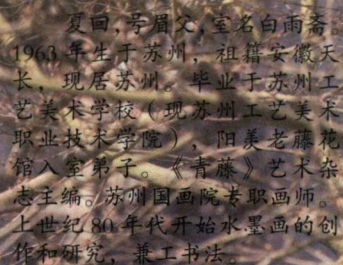 夏回，号眉父，室名白雨斋。
1963年生于苏州，祖籍安徽天
长，现居苏州。毕业于苏州工
艺美术学校（现苏州工艺美术
职业技术学院），阳羡老藤花
馆入室弟子。《青藤》艺术杂
志主编。苏州国画院专职画师。
上世纪80年代开始水墨画的创
作和研究，兼工书法。